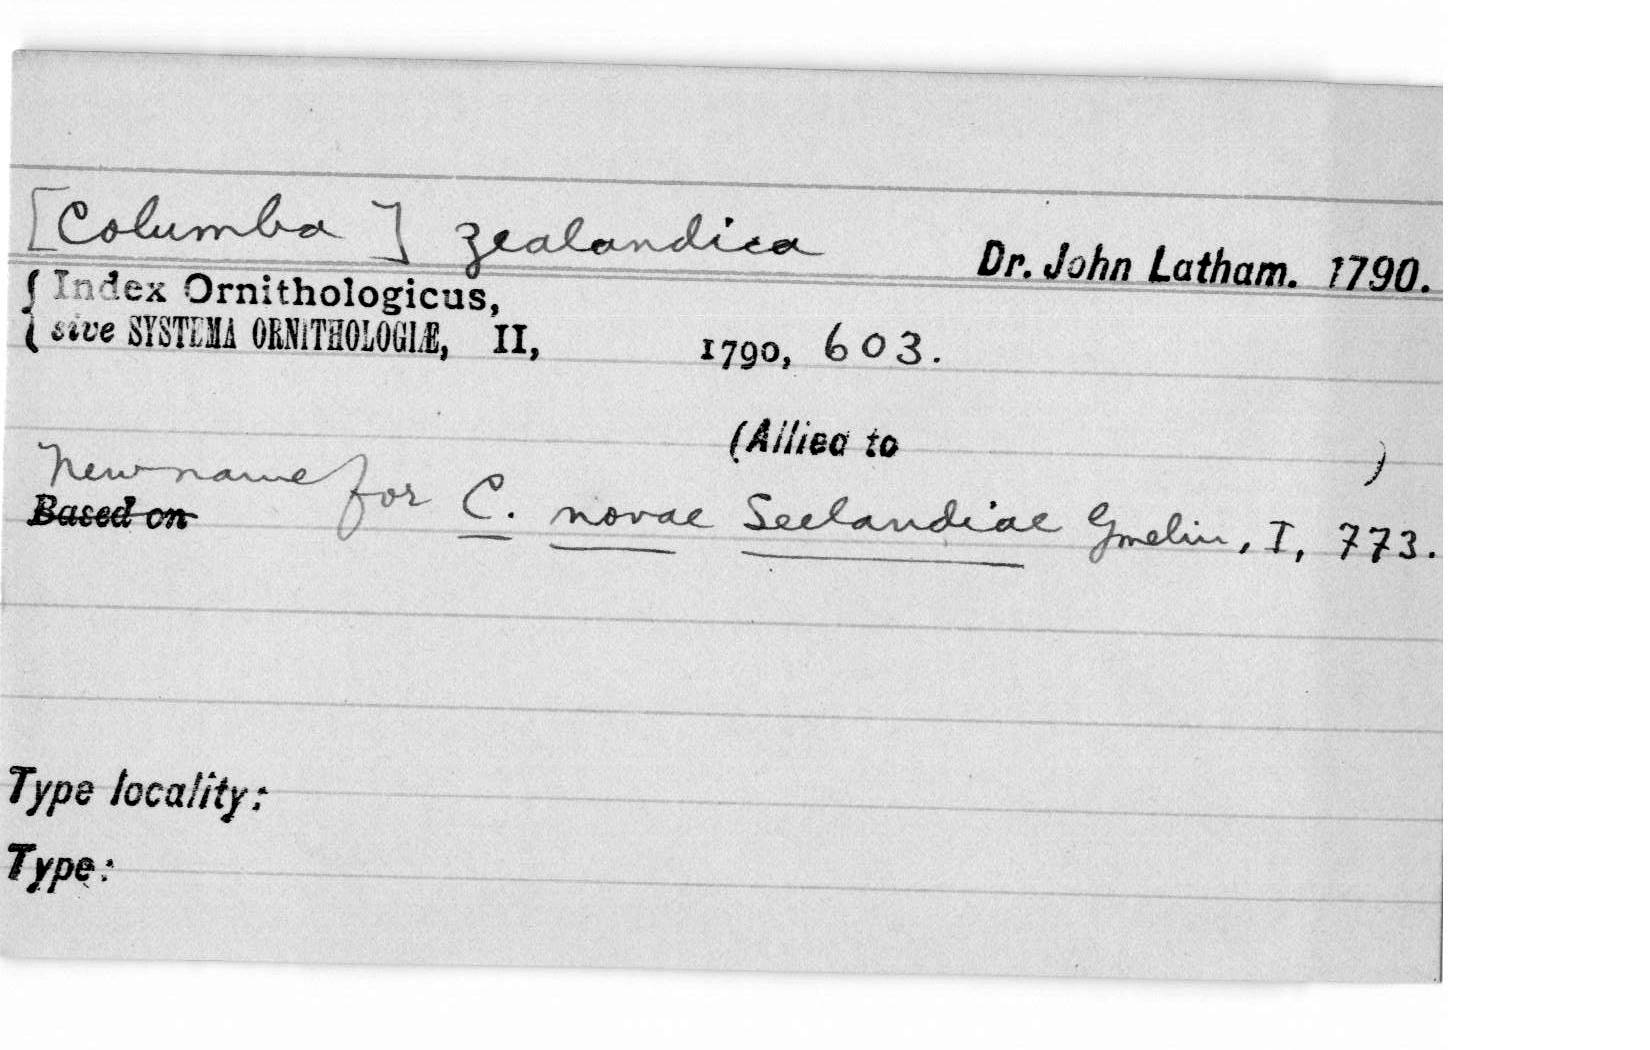 [Columba] zealandica Dr. John Latham. 1790.
{ Index Ornithologicus,
sive SYSTEMA ORNITHOLOGIÆ, II, 1790, 603.
(Allied to )
New name for C. novae Seelandiae Gmelin, I, 773.
Based on
Type locality:
Type: